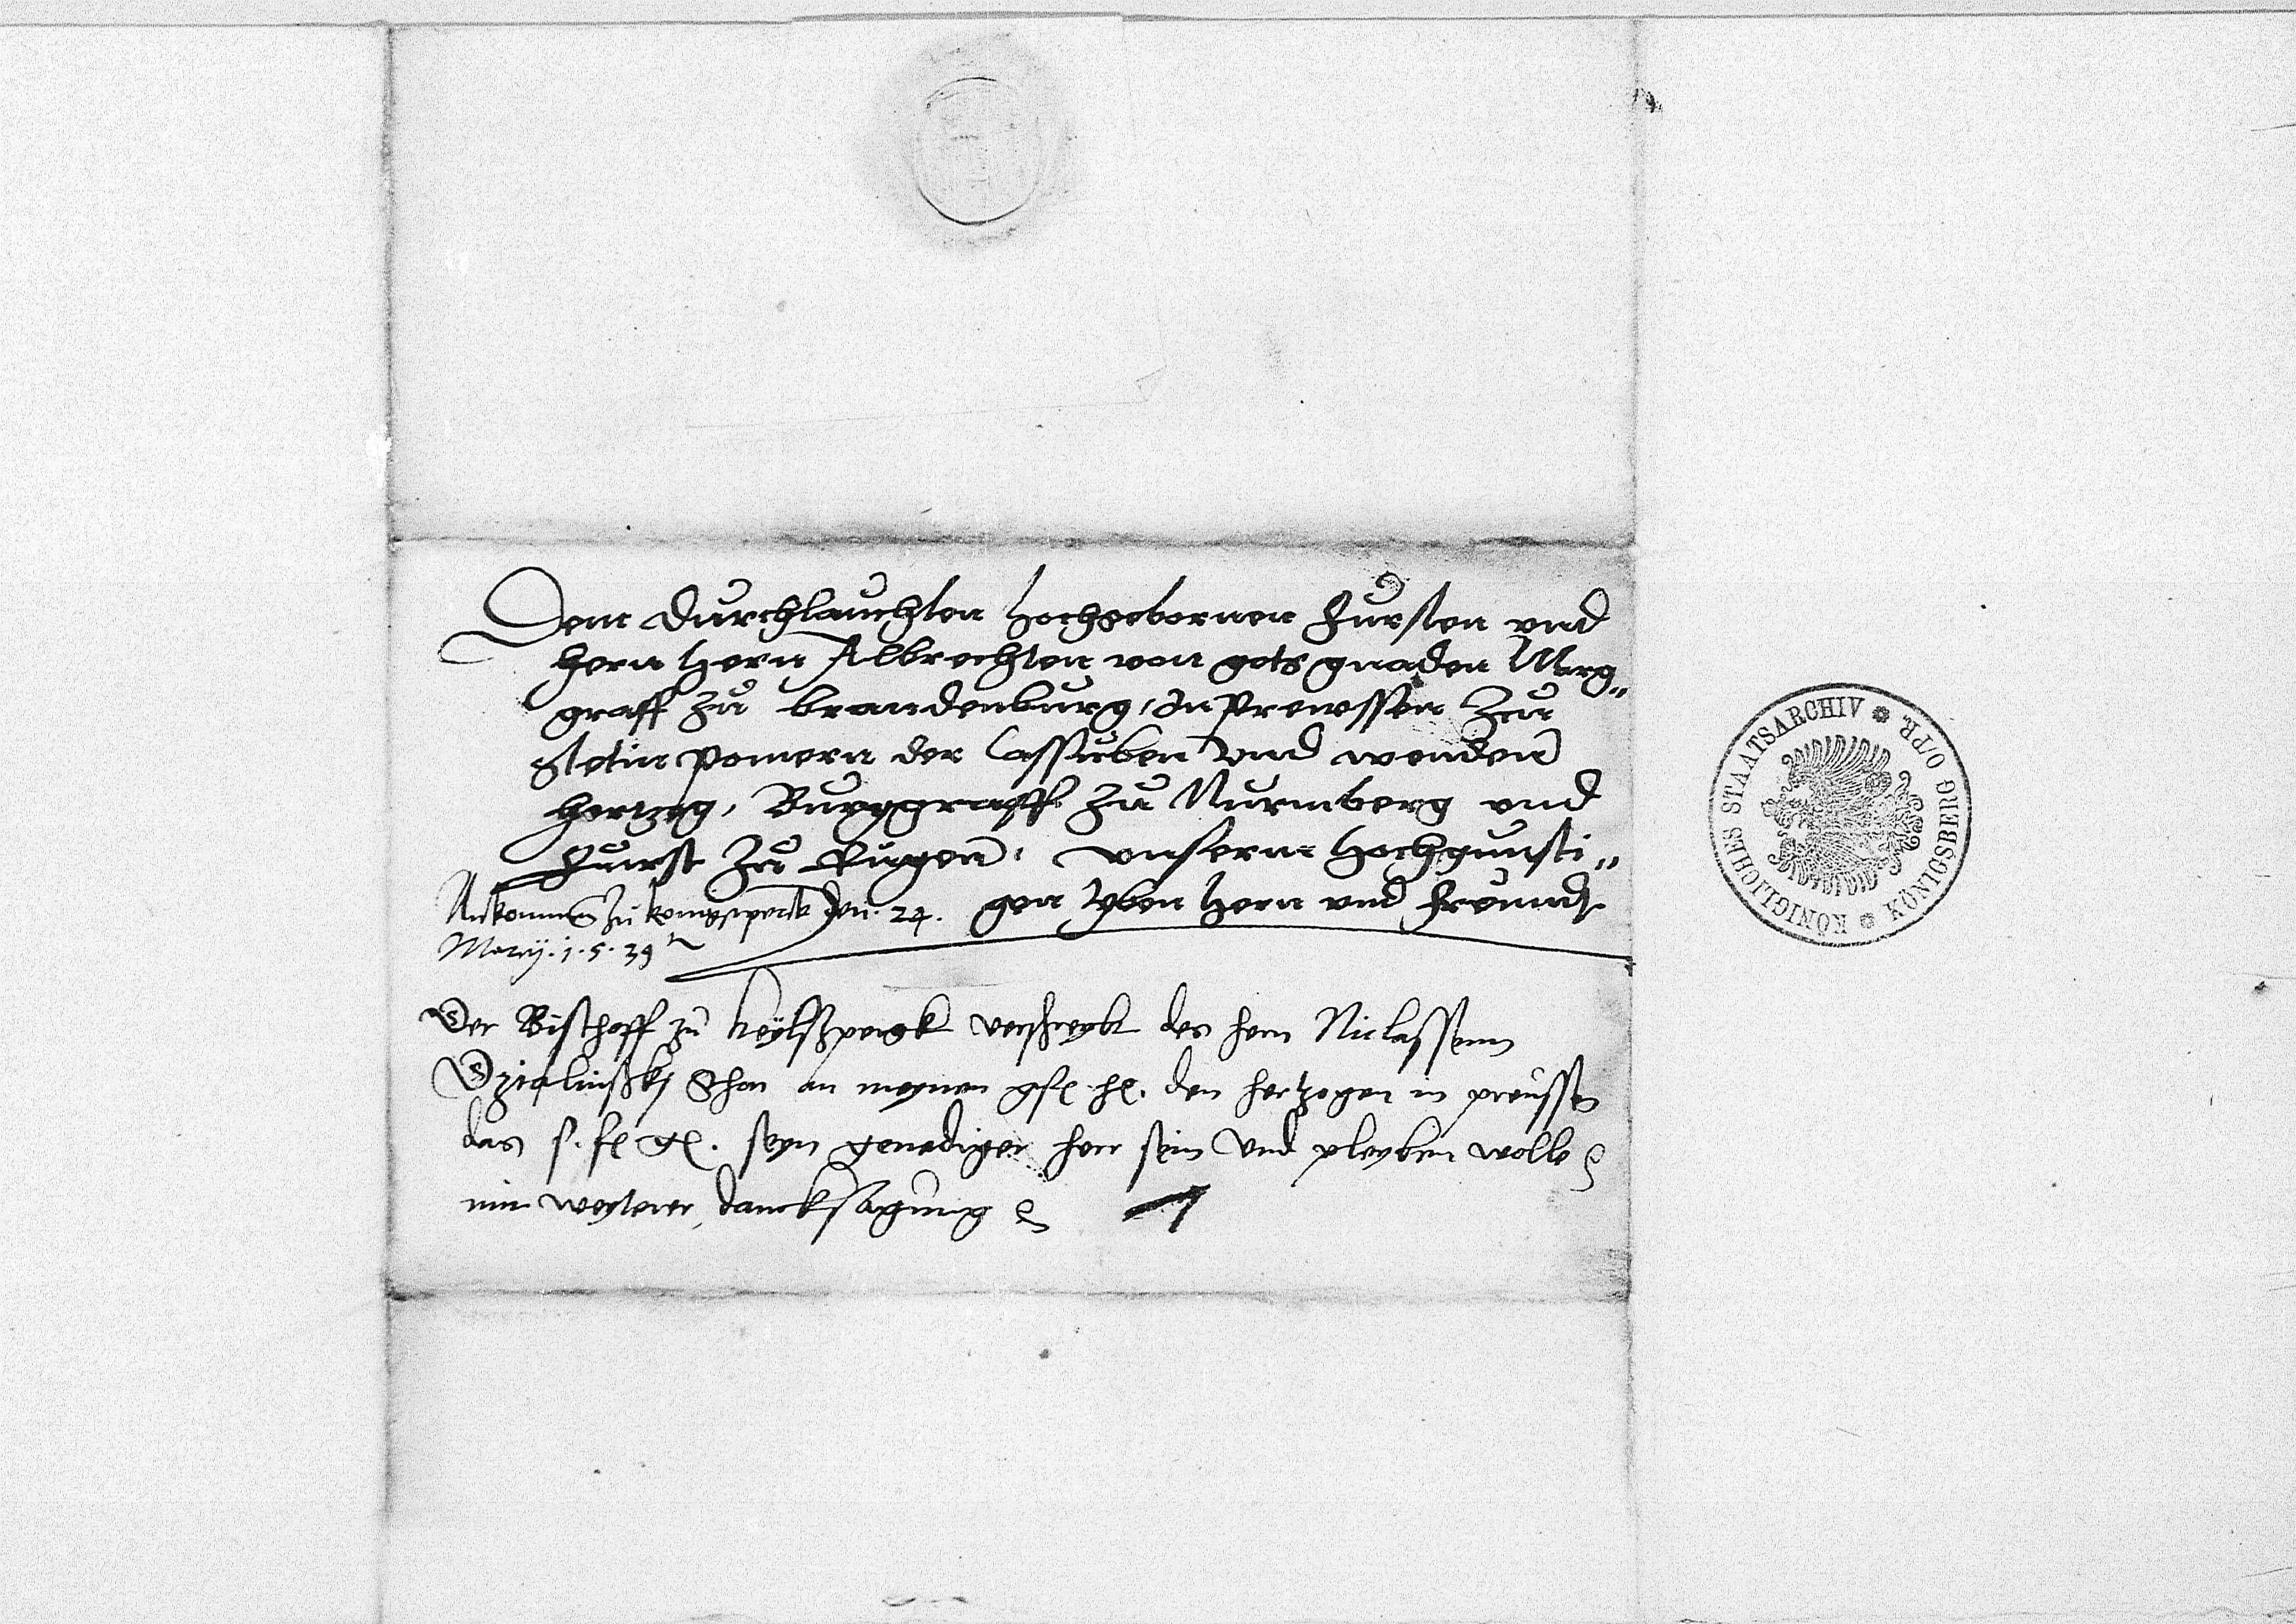 Dem durchlauchten hochgebornen Fursten vnd
hern hern Albrechten von gots gnaden Marg„
graff zu brandenburg, In Prewssen zu
Stetin pomern der Cassuben vnd wenden
hertzog, Burggraff zu Nurmberg vnd
Furst zu Rugen, vnserm hochgunsti„
gen lyben hern vnd freundt
Ankommen zu konigsperck den 24.
Marcij. 1.5.39
Der Bischoff zu heylßpergk verschreybt des hern Niclassenn
Dzialinsskj Shon an meynen gst h. den hertzogen in preussen
das s. f. g. seyn genediger herr sein vnd pleyben wolle
mit weyterer dancksagung
KÖNIGLICHES STAATSARCHIV KÖNIGSBERG O/PR.